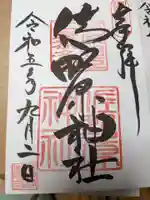 奉拝
佐野原神社
令和五年九月二日